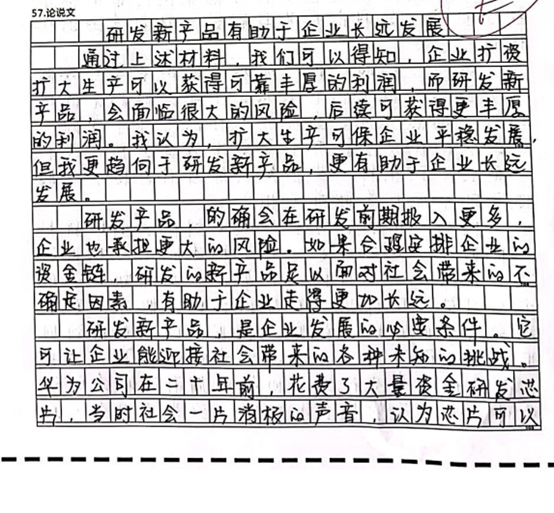 57.论说文
研发新产品有助于企业长远发展
通过上述材料，我们可以得知，企业扩资
扩大生产可以获得可靠丰厚的利润，而研发新
产品，会面临很大的风险，后续可获得更丰厚
的利润。我认为，扩大生产可保企业平稳发展，
但我更趋向于研发新产品，更有助于企业长远
发展。
研发产品，的确会在研发前期投入更多，
企业也承担更大的风险。如果合理安排企业的
资金链，研发的新产品足以面对社会带来的不
确定因素，有助于企业走得更加长远。
研发新产品，是企业发展的必要条件。它
可让企业能迎接社会带来的各种未知的挑战。
华为公司在二十年前，花费了大量资金研发芯
片，当时社会一片消极的声音，认为芯片可以